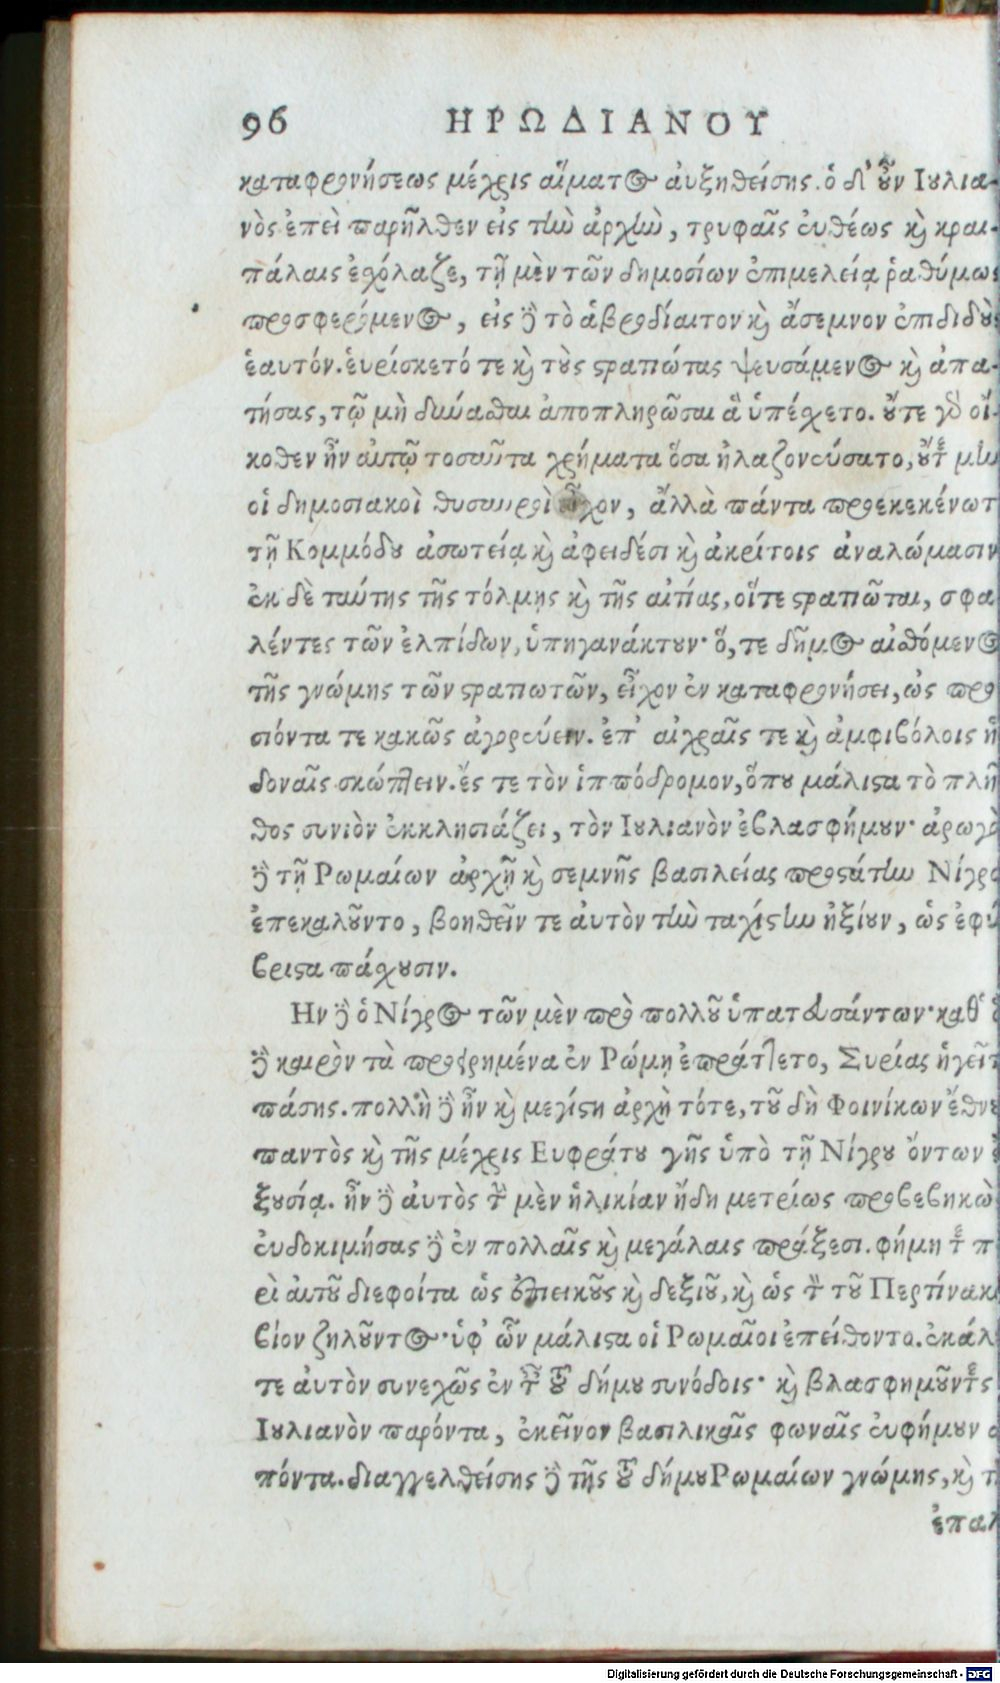 96 ΗΡΩΔΙΑΝΟΥ
καταφρονήσεως μέχρις αἵματος αὐξηθείσης. ὁ δ' οὖν Ιουλια-
νὸς ἐπεὶ παρῆλθεν εἰς τὴν ἀρχὴν, τρυφαῖς εὐθέως καὶ κραι-
πάλαις ἐχόλαζε, τῇ μὲν τῶν δημοσίων ἐπιμελείᾳ ῥαθύμως
προσφερόμενος, εἰς δὲ τὸ ἁβροδίαιτον καὶ ἄσεμνον ἐπιδιδοὺς
ἑαυτόν. ἑυρίσκετό τε καὶ τοὺς στρατιώτας ψευσάμενος καὶ ἀπα-
τήσας, τῷ μὴ δύνασθαι ἀποπληρῶσαι ἃ ὑπέσχετο. οὔτε γὰρ οἴ-
κοθεν ἦν αὐτῷ τοσαῦτα χρήματα ὅσα ἠλαζονεύσατο, οὔτε μὴν
οἱ δημοσιακοὶ θυσαυροὶ εἶχον, ἄλλὰ πάντα προεκεκένωτ
τῇ Κομμόδου ἀσωτείᾳ καὶ ἀφειδέσι καὶ ἀκρίτοις ἀναλώμασιν
ἐκ δὲ ταύτης τῆς τόλμης καὶ τῆς αἰτίας, οἵτε στρατιῶται, σφα
λέντες τῶν ἐλπίδων, ὑπηγανάκτουν· ὅ, τε δῆμος αἰσθόμενος
τῆς γνώμης τῶν στρατιωτῶν, εἶχον ἐν καταφρονήσει, ὡς προ
σιόντα τε κακῶς ἀγορεύειν. ἐπ' αἰσχραῖς τε καὶ ἀμφιβόλοις ἡ
δοναῖς σκώπτειν. ἔς τε τὸν ἱππόδρομον, ὅπου μάλιστα τὸ πλῆ
θος συνιὸν ἐκκλησιάζει, τὸν Ιουλιανὸν ἐβλασφήμουν· ἀρωγὸ
δὲ τῇ Ρωμαίων ἀρχῇ καὶ σεμνῆς βασιλείας προστάτην Νίγρο
ἐπεκαλοῦντο, βοηθεῖν τε ἀυτὸν τὴν ταχίστην ἠξίουν, ὡς ἐφύ
βριστα πάσχουσιν.
Ην δὲ ὁ Νίγρος τῶν μὲν πρὸ πολλοῦ ὑπατευσάντων· καθ' ὃ
δὲ καιρὸν τὰ προειρημένα ἐν Ρώμῃ ἐπράττετο, Συρίας ἡγεῖτ
πάσης. πολλὴ δὲ ἦν καὶ μεγίστη ἀρχὴ τότε, τοῦ δὴ Φοινίκων ἔθνου
παντὸς καὶ τῆς μέχρις Ευφράτου γῆς ὑπὸ τῇ Νίγρου ὄντων ἐ
ξουσίᾳ. ἦν δὲ ἀυτὸς τὴν μὲν ἡλικίαν ἤδη μετρίως προβεβηκὼ
εὐδοκιμήσας δὲ ἐν πολλαῖς καὶ μεγάλαις πράξεσι. φήμη τε π
ρὶ αὐτοῦ διεφοίτα ὡς ἐπιεικοῦς καὶ δεξιοῦ, καὶ ὡς τὸν τοῦ Περτίνακ
βίον ζηλοῦντος· ὑφ' ὧν μάλιστα οἱ Ρωμαῖοι ἐπείθοντο. ἐκάλ
τε ἀυτὸν συνεχῶς ἐν ταῖς τοῦ δήμου συνόδοις· καὶ βλασφημοῦντες
Ιουλιανὸν παρόντα, ἐκεῖνον βασιλικαῖς φωναῖς εὐφήμουν
πόντα. διαγγελθείσης δὲ τῆς τοῦ δήμου Ρωμαίων γνώμης, καὶ τ
ἐπαλ
Digitalisierung gefördert durch die Deutsche Forschungsgemeinschaft - DFG